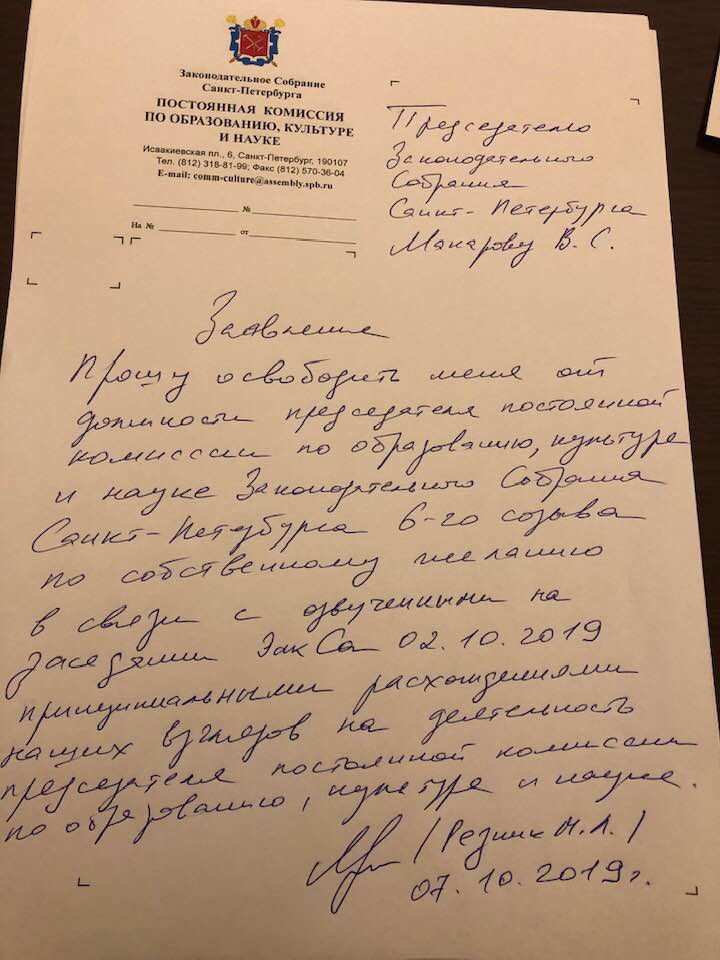 Законодательное Собрание
Санкт-Петербурга
ПОСТОЯННАЯ КОМИССИЯ
ПО ОБРАЗОВАНИЮ, КУЛЬТУРЕ
И НАУКЕ
Исаакиевская пл., 6, Санкт-Петербург, 190107
Тел. (812) 318-81-99; Факс (812) 570-36-04
E-mail: comm-culture@assembly.spb.ru
№
На № от
Председателю
Законодательного
Собрания
Санкт-Петербурга
Макарову В. С.
Заявление
Прошу освободить меня от
должности председателя постоянной
комиссии по образованию, культуре
и науке Законодательного Собрания
Санкт-Петербурга 6-го созыва
по собственному желанию
в связи с озвученными на
заседании ЗакСа 02.10.2019
принципиальными расхождениями
наших взглядов на деятельность
председателя постоянной комиссии
по образованию, культуре и науке.
/Резник М.Л./
07.10.2019г.